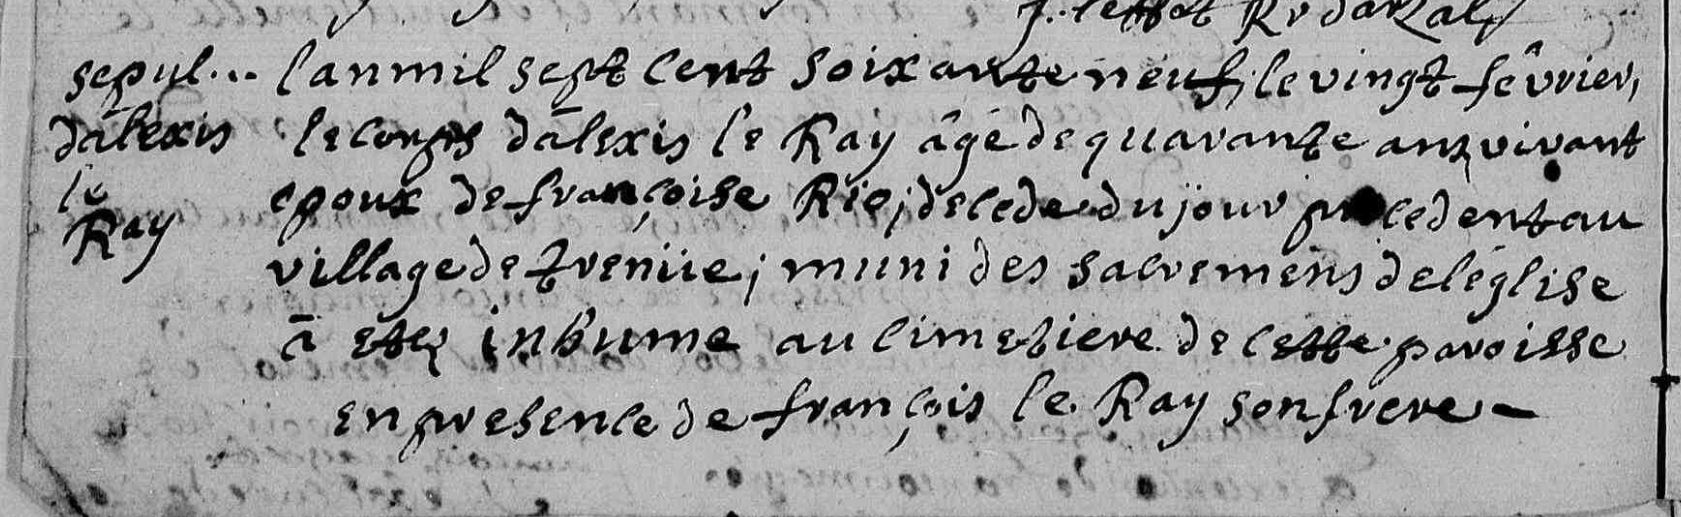 sepul... lan mil sept cent soixante neuf, le vingt fêvrier,
dālexis le corps dālexis le Ray âgé de quarante ans vivant
le epoux de françoise Rio; decede du jour precedent au
Ray village de trenüe; muni des sacremens de léglise
ā eté inhume au cimetiere de cette paroisse
en presence de françois le Ray son frere -